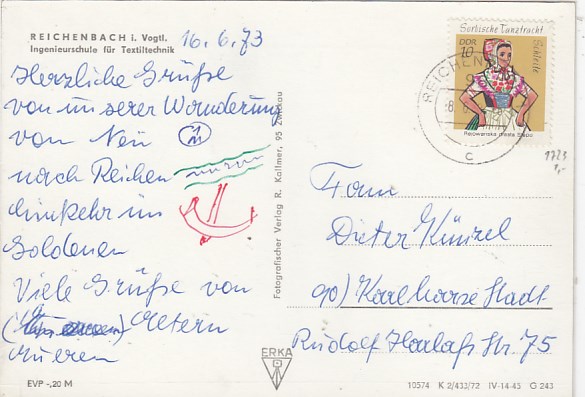 REICHENBACH i. Vogtl.
Ingenieurschule für Textiltechnik
16.6.73
Herzliche Grüße
von unserer Wanderung
von Neu
nach Reichen
Einkehr im
Goldenen
Viele Grüße von
Eltern
EVP -,20 M
Fotografischer Verlag R. Kallmer, 95 Zwickau
ERKA
Sorbische Tanztracht
DDR
10
Schleife
REICHENB
c
1723
Fam
Dieter Künzel
90) Karl Marx Stadt
Rudolf Harlaß Str. 75
10574 K 2/433/72 IV-14-45 G 243